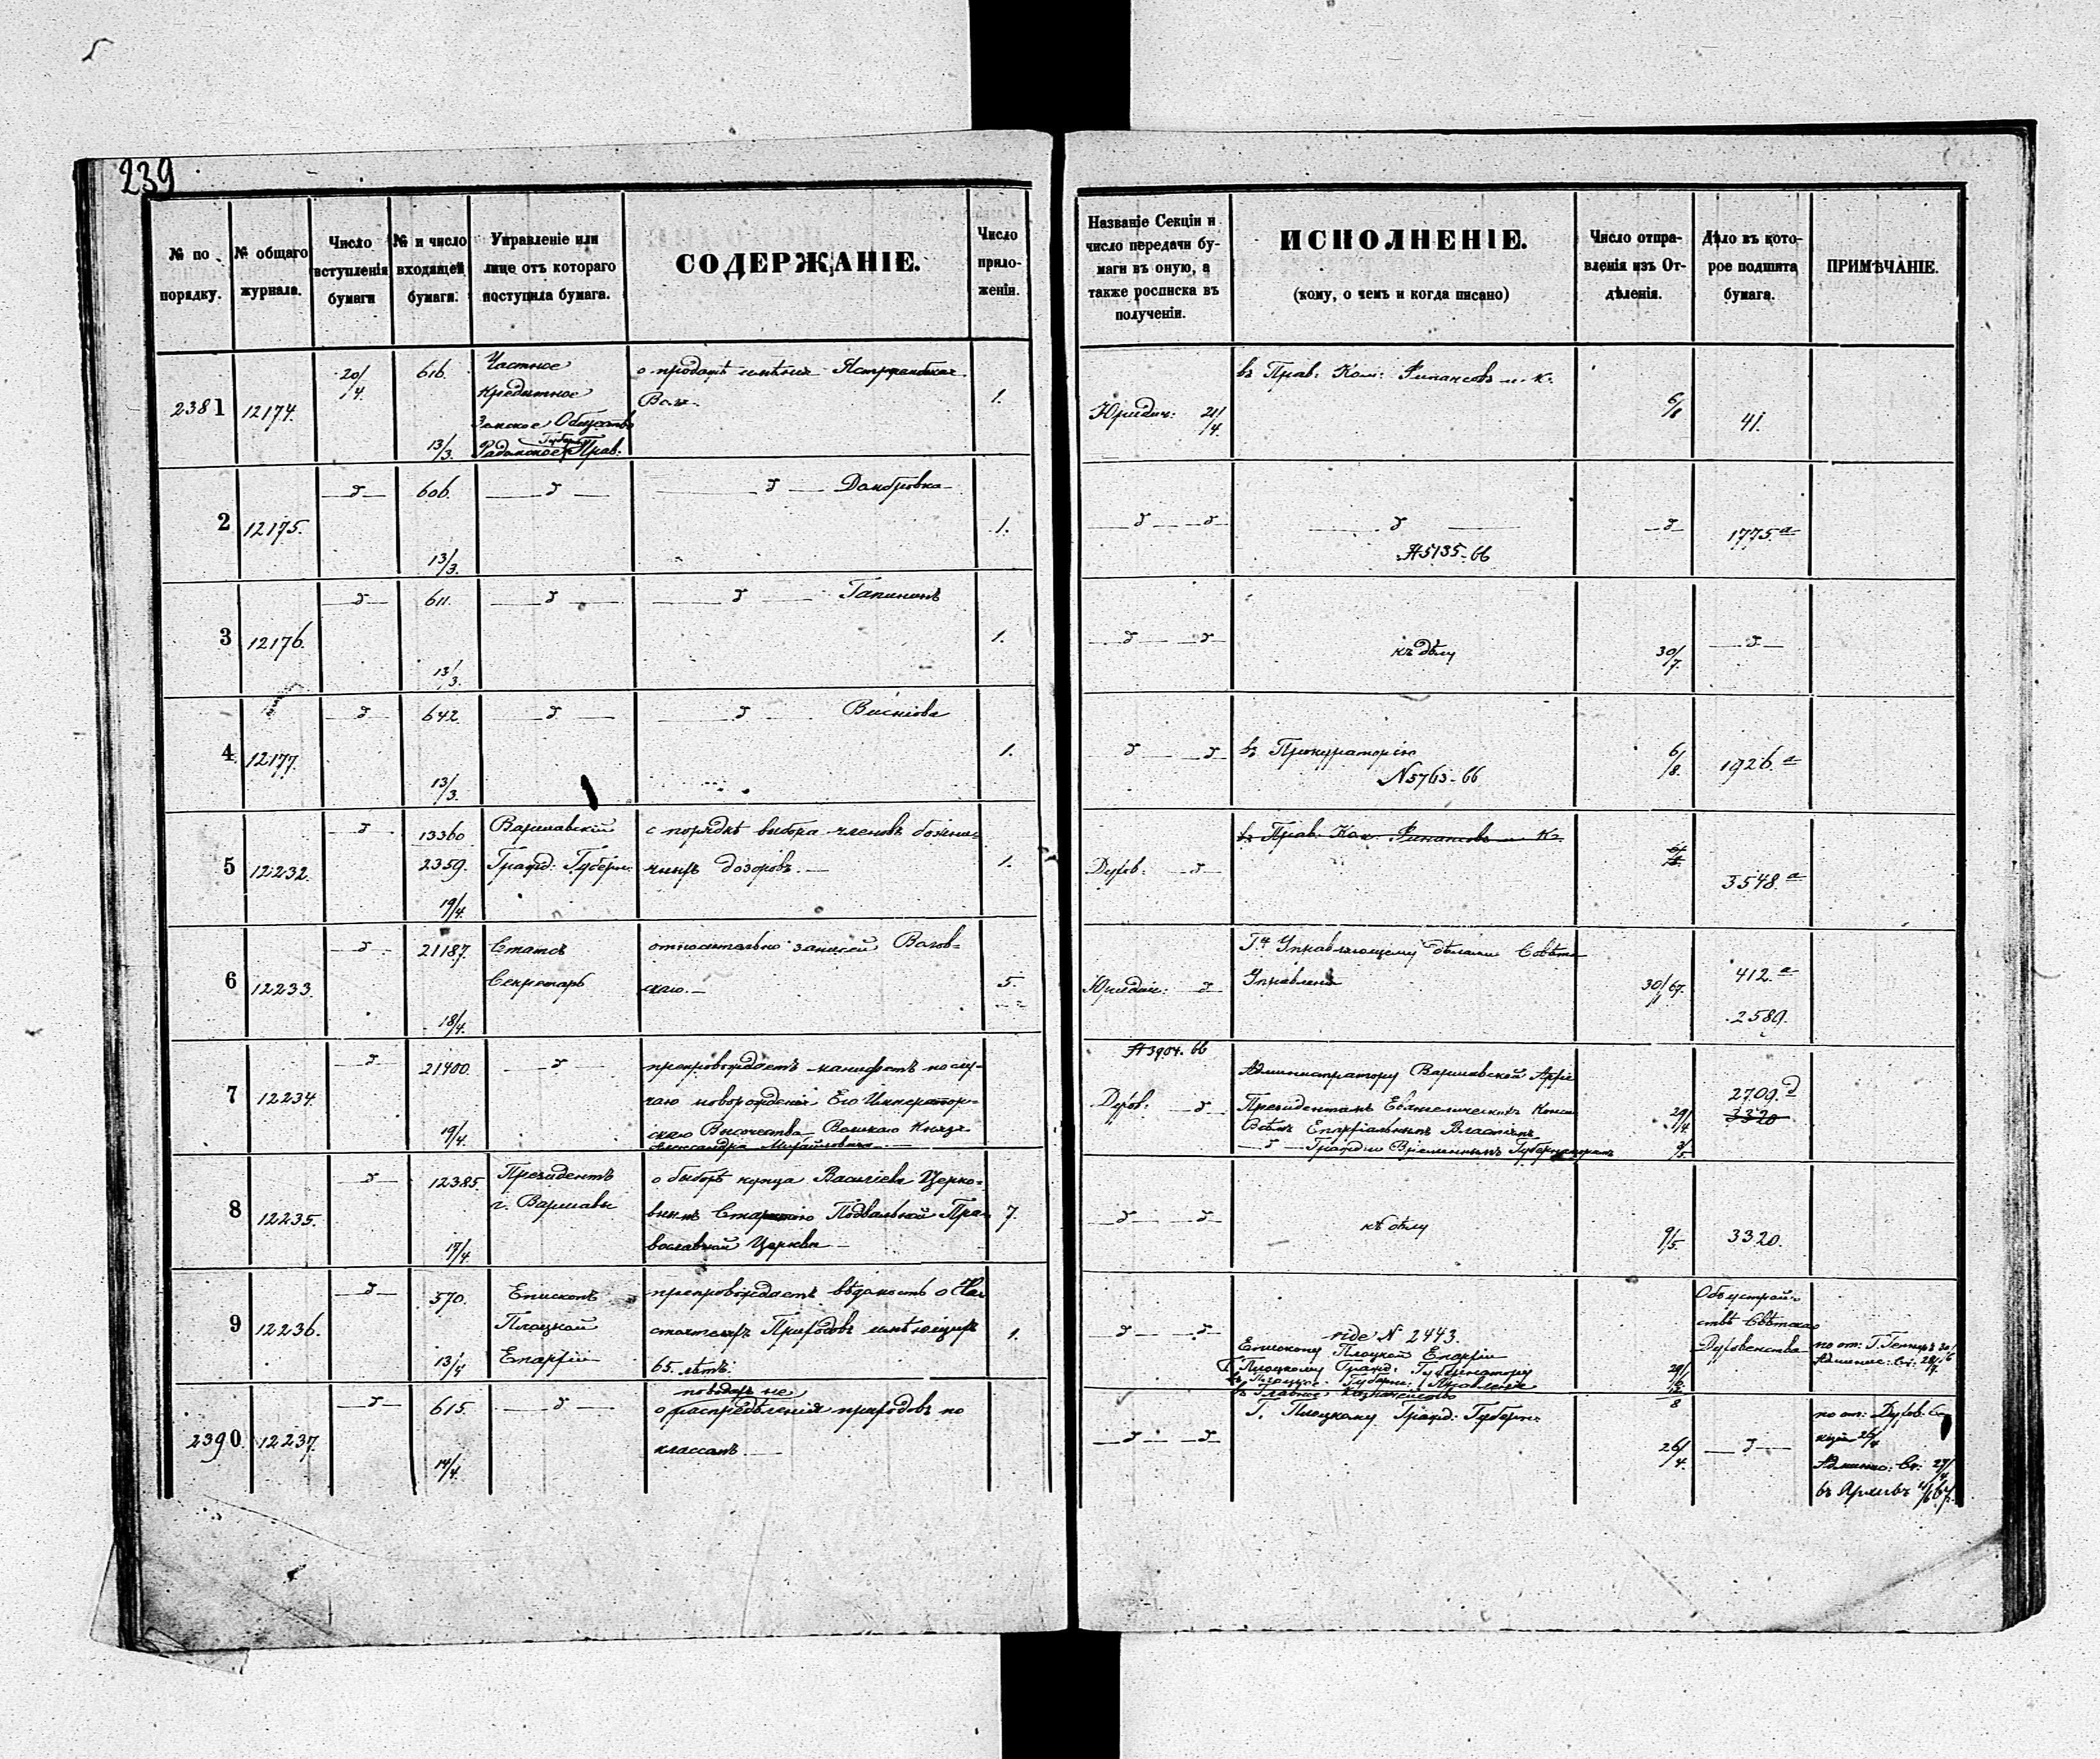 239
№ по порядку.
№ общаго журнала.
Число вступленія бумаги
№ и число входящей бумаги.
Управленіе или лице отъ котораго поступила бумага.
СОДЕРЖАНІЕ.
Число приложеніи.
Названіе Секціи и число передачи бумаги въ оную, а также росписка въ полученіи.
ИСПОЛНЕНІЕ.
(кому, о чемъ и когда писано)
Число отправленія изъ Отдѣленія.
Дѣло въ которое подшита бумага.
ПРИМѢЧАНІЕ.
2381 12174. 20/4. 616. 13/3.
Частное
Кредитное
Земское Общество
Губерн
Радомское Прав.
о продажѣ имѣнія
1.
Юридич: 21/4.
въ Прав. Ком: Финансовъ и. К.
6/8
41.
2 12175. —д— 606. 13/3. —д— —д— Домбровка
1.
—д— —д— —д—
№5135-66
—д— 1775.а
3 12176. —д— 611. 13/3. —д— —д—
1.
—д— —д— къ дѣлу 30/7. —д—
4 12177. —д— 642. 13/3. —д— —д— Висніова
1.
—д— —д— въ Прокураторію
№5763-66
6/8. 1926.а
5 12232. —д— 13360
2359. 19/4.
Варшавскій
Гражд: Губерн:
о порядкѣ выбора членовъ божни-
чныхъ дозоровъ.—
1.
Духов: —д—
въ Прав. Ком. Финансовъ и. К.
3548.а
6 12233. —д— 21187. 18/4.
Статсъ
Секретарь
относительно записей
скаго.—
5.
Юридич: —д—
Управляющему дѣлами Совѣта
Управленія
30/1 67.
412.а
2589.
7 12234. —д— 21400. 19/4. —д—
препровождаетъ манифестъ по слу-
чаю новорожденія Его Император-
скаго Высочества Великаго Князя
Александра Михайловича.—
№3904.66
Духов: —д—
Администратору Варшавской Архіе
Президентамъ Еванелическихъ Конси
Всѣмъ Епархіальнымъ Властямъ
—д— Гражд и Временнымъ Губернаторамъ
29/4
3/5
2709.д
3320
8 12235. —д— 12385. 17/4.
Президентъ
г. Варшавы
о выборѣ купца Васильева Церко-
внымъ Старостою Подвальной Пра-
вославной Церкви—
7.
—д— —д— къ дѣлу 9/5. 3320.
9 12236. —д— 570. 13/4
Епископъ
Плоцкой
Епархіи
препровождаетъ вѣдомость о На-
стоятеляхъ Приходовъ имѣющихъ
65. лѣтъ.
1.
—д— —д—
vide № 2443.
Епископу Плоцкой Епархіи
Плоцкому Гражд: Губернатору
въ Плоцкое Губерн: Правленіе
въ Главное Казначейство
Объ устрой-
ствѣ Свѣтскаго
Духовенства
2390. 12237. —д— 615. 14/4. —д—
поводахъ не
о распредѣленія приходовъ по
классамъ—
—д— —д—
Г. Плоцкому Гражд: Губерн:
26/4. —д—
по от: Духов. Се
кціи 26/4
27/4
въ Архивъ